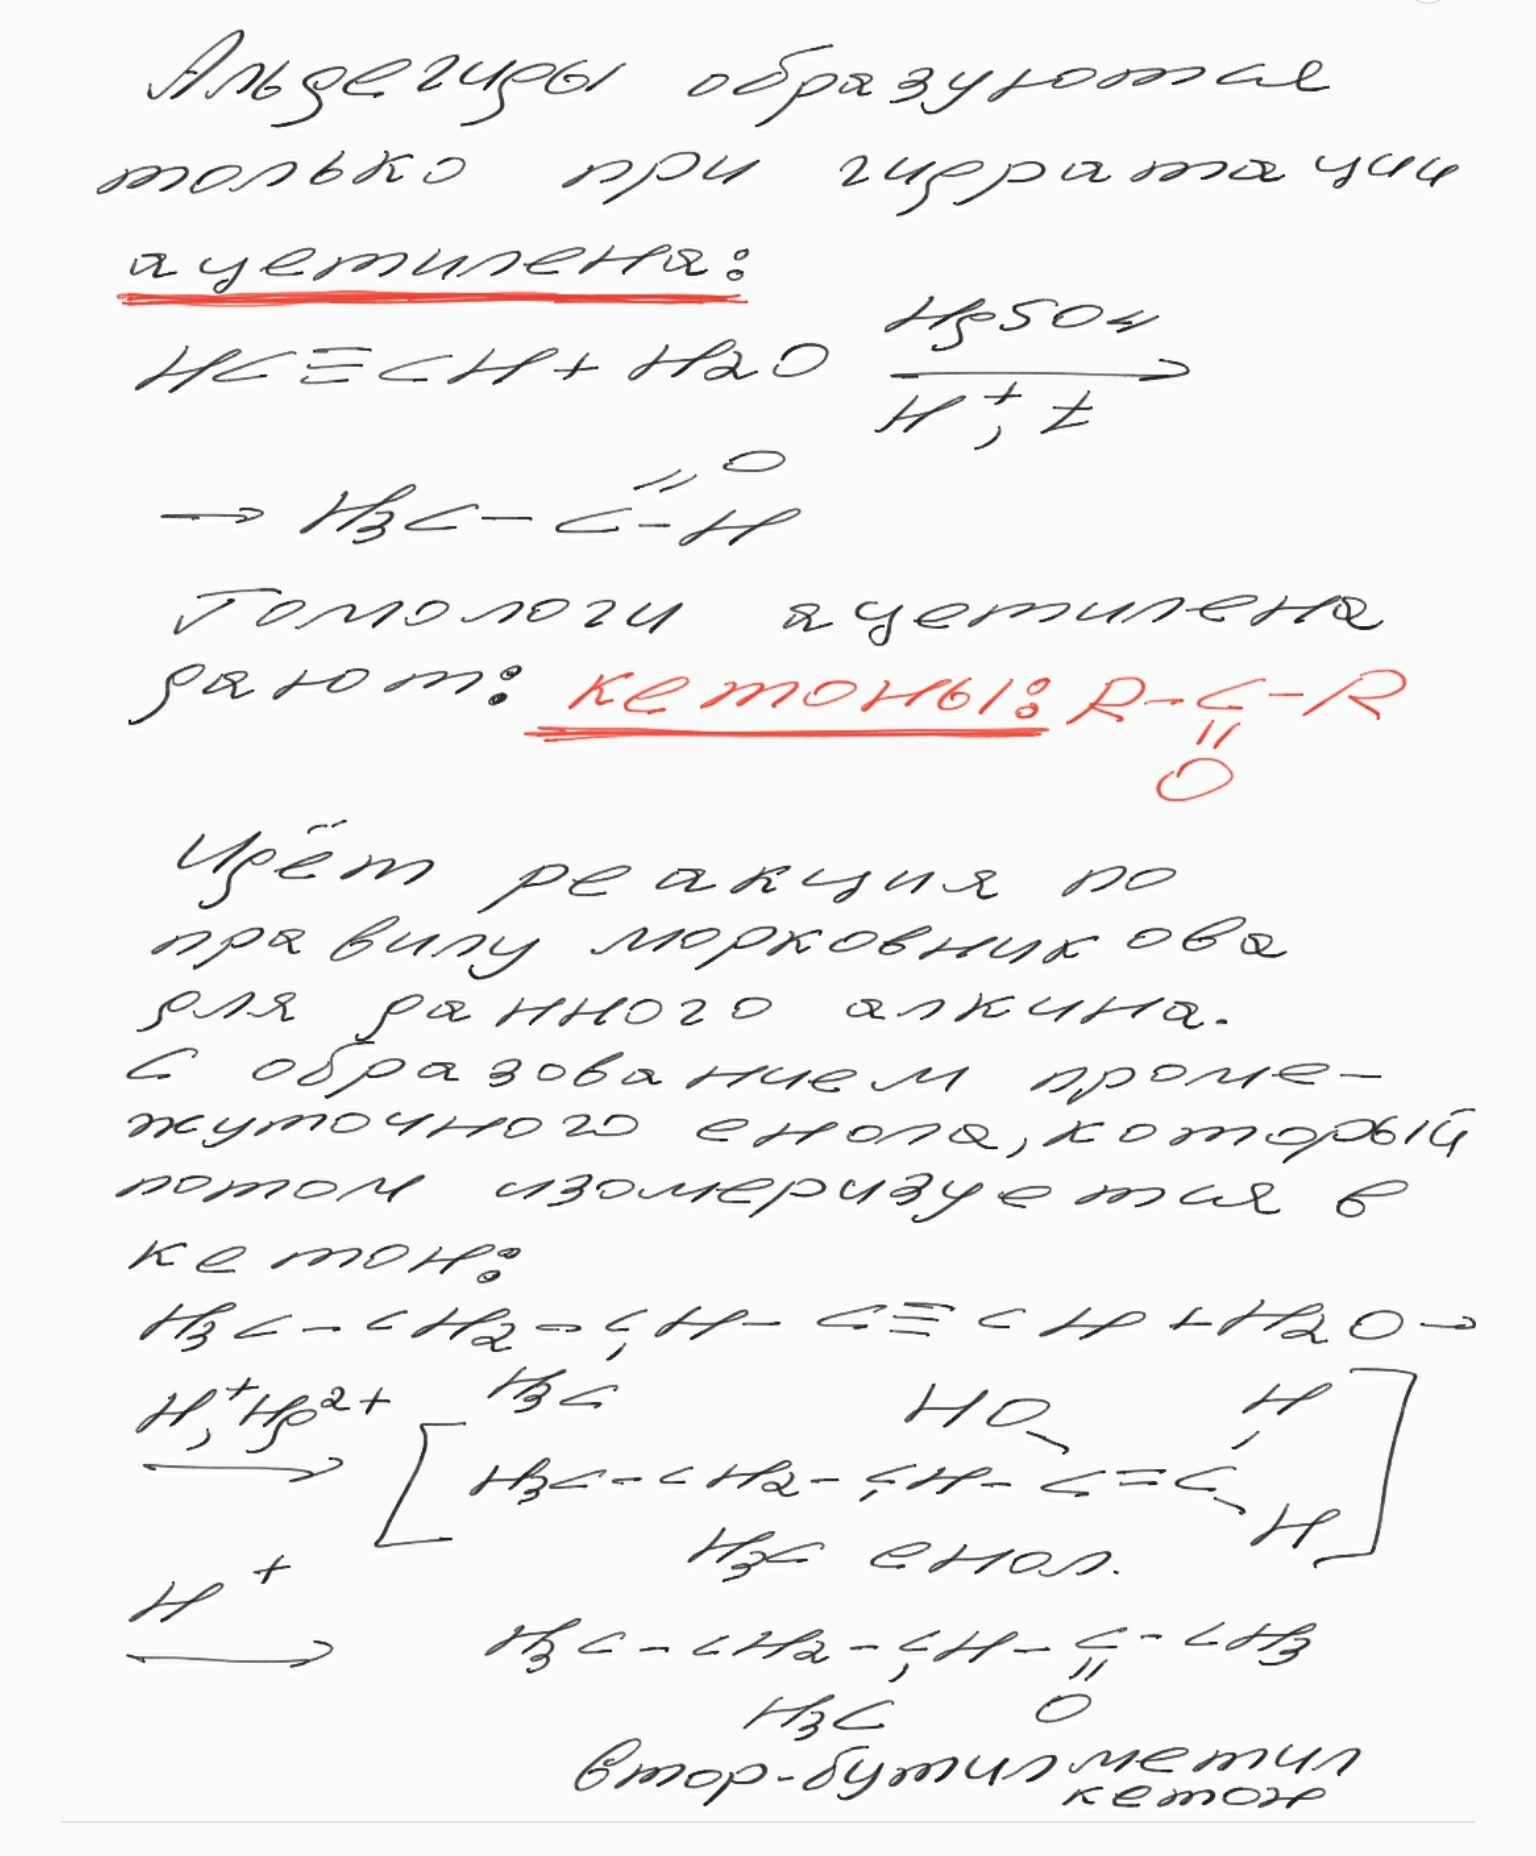 Альдегиды образуются
только при гидратации
ацетилена:
HC≡CH + H2O HgSO4
H+, t
→ H3C - C - H
= O
Гомологи ацетилена
дают: кетоны: R-C-R
=
O
Идёт реакция по
правилу морковникова
для данного алкина.
С образованием проме-
жуточного енола, который
потом изомеризуется в
кетон:
H3C - CH2 - CH - C≡CH + H2O →
H3C
H+, Hg2+
HO H
[H3C - CH2 - CH - C = C]
H3C енол. H
H+
H3C - CH2 - CH - C - CH3
H3C O
втор-бутилметил
кетон